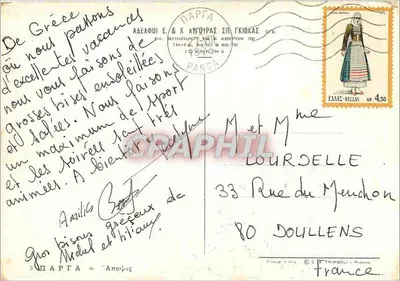 De Grèce
où nous passons
d'excellentes vacances
nous vous faisons de
grosses bises ensoleillées
et salées. Nous faisons
un maximum de sport
et les soirées sont très
animées. A bientôt
Amitiés
Gros bisous grèceux de
Michel et Liliane
ΑΔΕΛΦΟΙ Ε. & Χ. ΛΥΓΟΥΡΑΣ ΣΠ. ΓΚΙΟΚΑΣ Ο.Ε.
ΙΩΑΝΝΙΝΑ
ΠΑΡΓΑ
PARGA
ΕΛΛΑΣ-HELLAS ΔΡ. 4,50
GRAPHTI
M et Mme
LOURDELLE
33 Rue du Menchon
80 DOULLENS
France
ΠΑΡΓΑ = Άποψις